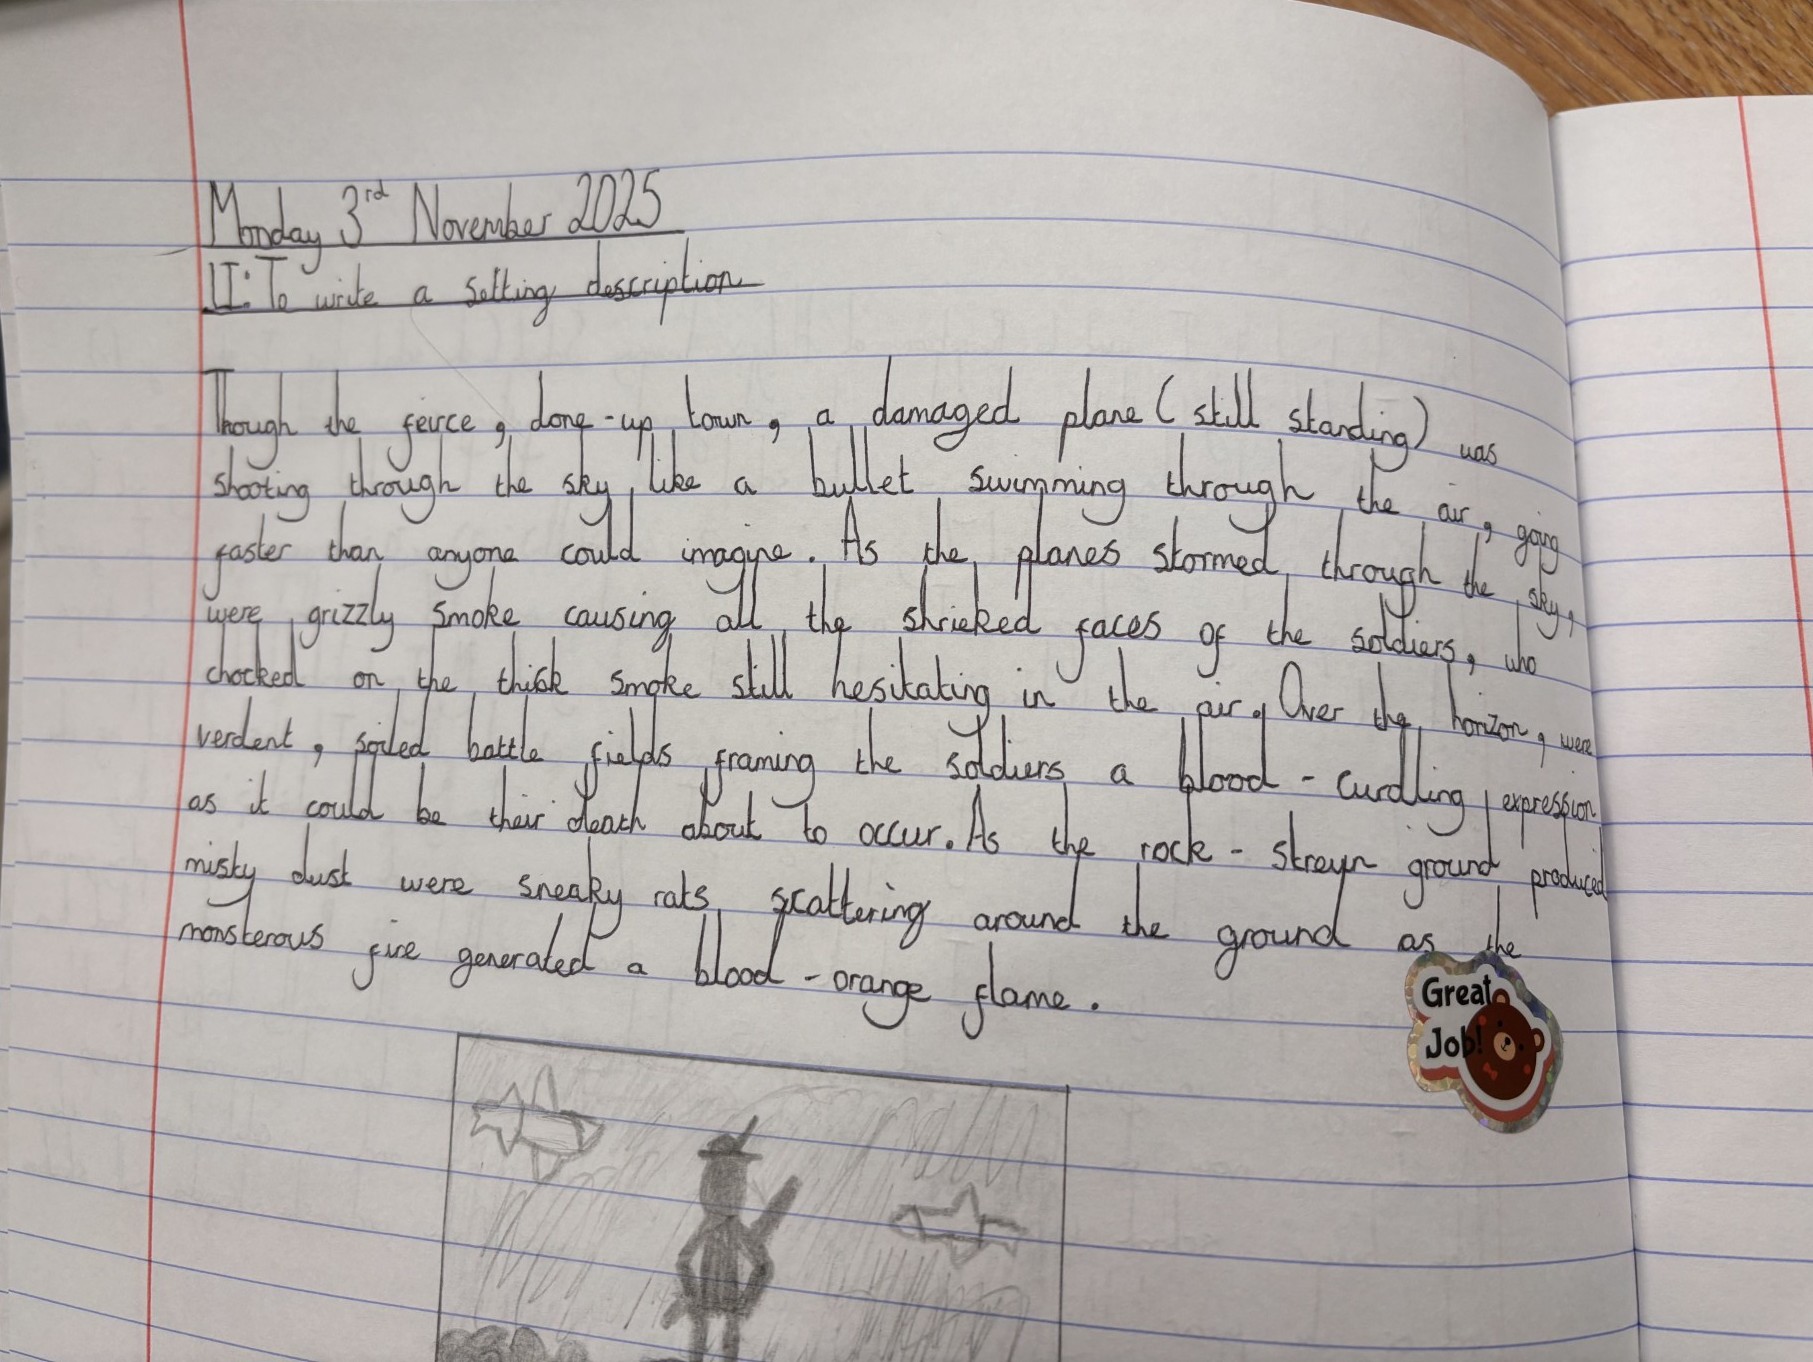 Monday 3rd November 2025
LI: To write a setting description
Though the feirce, done-up town, a damaged plane (still standing) was
shooting through the sky like a bullet swimming through the air, going
faster than anyone could imagine. As the planes stormed through the sky,
were grizzly smoke causing all the shrieked faces of the soldiers, who
chocked on the thick smoke still hesitating in the air. Over the horizon, were
verdent, soiled battle fields framing the soldiers a blood-curdling expression
as it could be their death about to occur. As the rock-strewn ground produced
misty dust were sneaky rats scattering around the ground as the
monsterous fire generated a blood-orange flame.
Great
Job!